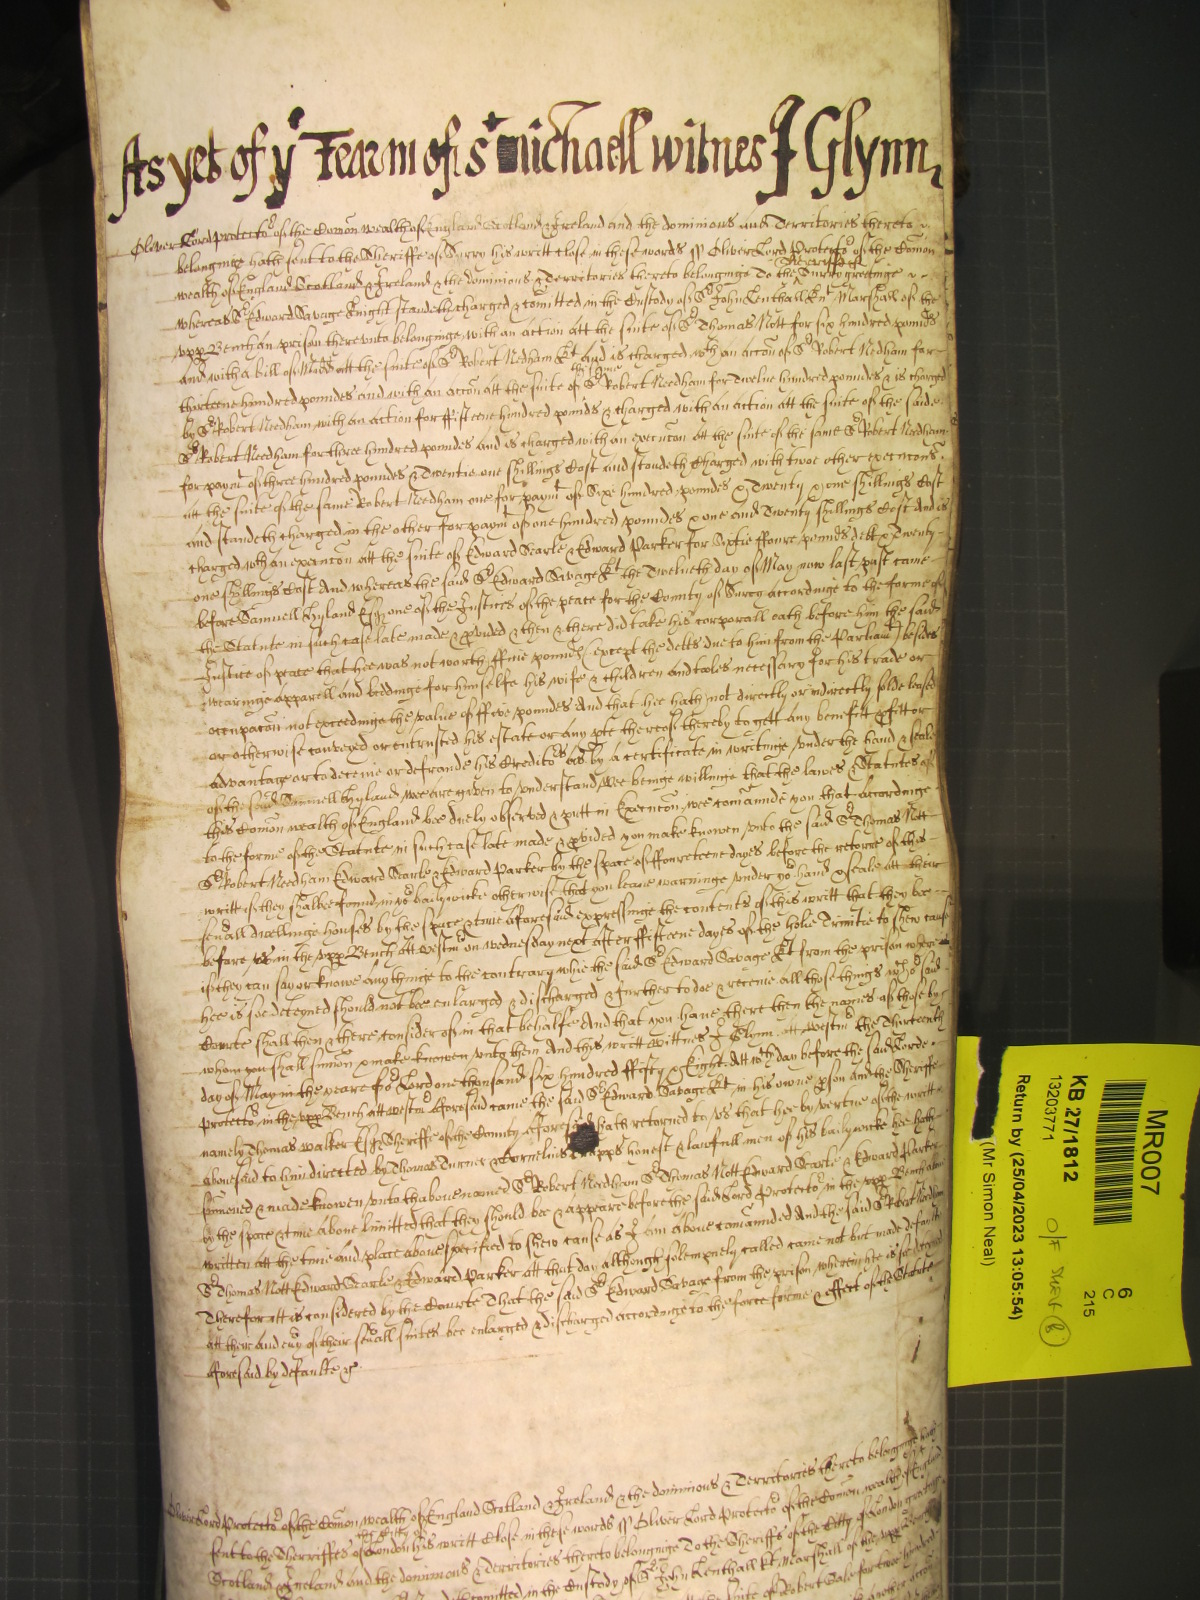 As yet of ye Tearm of St Michaell witnes J Glynn
Oliver Lord Protector of the Comon wealth of England Scotland & Ireland and the dominions and Territories thereto
belonginge hath sent to the Sheriffe of Surry his writt close in these words ss Oliver Lord Protector of the Comon
wealth of England Scotland & Ireland & the dominions & Territories thereto belonginge To the Sheriffe of Surry greetinge
whereas Sr Edward Savage Knight standeth charged & comitted in the Custody of Sr John Lenthall Knt Marshall of the
upp Bench in prison thereunto belonginge with an action att the suite of Sr Thomas Nott for six hundred pounds
and with a bill of Midd att the suite of Sr Robert Nedham Kt and is charged wth an accon of Sr Robert Nedham for
thirteene hundred poundes and with an accon att the suite of the same Sr Robert Needham for Twelve hundred poundes & is charged
by Sr Robert Needham with an action for ffifteene hundred pounds & charged with an action att the suite of the said
Sr Robert Needham for three hundred poundes and is charged with an execucon att the suite of the same Sr Robert Needham
for paymt of three hundred poundes & Twentie one shillings Cost and standeth Charged with twoe other execucons
att the suite of the same Robert Needham one for paymt of Sixe hundred poundes & Twenty & one shillings Cost
and standeth charged in the other for paymt of one hundred poundes & one and Twenty shillings Cost And is
charged wth an execucon att the suite of Edward Searle & Edward Parker for Sixtie ffoure pounds debt & Twenty
one shillings Cost And whereas the said Sr Edward Savage Kt the Twelueth day of May now last past came
before Samuell Hyland Esqr one of the Justices of the peace for the County of Surry accordinge to the forme of
the Statute in such case late made & pvided & then & there did take his corporall oath before him the said
Justice of peace that hee was not worth ffive pounds (except the debts due to him from the Parliamt) besides
wearinge apparell and beddinge for himselfe his wife & children and tooles necessary for his trade or
occupacon not exceedinge the value of ffive poundes And that hee hath not directly or indirectly solde leased
or otherwise conveyed or entrusted his estate or any pte thereof thereby to gett any benefitt pfitt or
advantage or to deceive or defraude his Creditors as by a certificate in writinge under the hand & seale
of the said Samuell Hyland wee are given to understand Wee beinge willinge that the lawes & Statutes of
this Comon wealth of England bee duely observed & putt in Execucon wee comaunde you that accordinge
to the forme of the Statute in such case late made & pvided you make knowen unto the said Sr Thomas Nott
Sr Robert Needham Edward Searle & Edward Parker by the space of ffourteene dayes before the retorne of this
writt if they shalbee found in yor bailywicke otherwise that you leave warninge under yor hand & seale att their
sevall dwellinge houses by the space & time aforesaid expressinge the contents of this writt that they bee
before us in the upp Bench att Westmr on Wednesday next after ffifteene dayes of the holie Trinitie to shew cause
if they can say or knowe any thinge to the contrary why the said Sr Edward Savage Kt from the prison where
hee is soe deteyned should not bee enlarged & discharged & further to doe & receive all those things wch or said
Courte shall then & there consider of in that behalfe And that you have there then the names of those by
whom you shall sumon & make knowen unto them And this writt Wittnes J Glynn att Westmr the Thirteenth
day of May in the yeare of or Lord one thousand six hundred ffifty & Eight Att wch day before the said Lorde
Protector in the upp Bench att Westmr aforesaid came the said Sr Edward Savage Kt in his owne pson and the Sheriffe
namely Thomas Walker Esqr Sheriffe of the County aforesaid hath retorned to us that hee by vertue of the writt
abovesaid to him directed by Thomas Turner & Cornelius honest & lawfull men of his bailywicke hee hath
sumoned & made knowen unto thabovenamed Sr Robert Needham Sr Thomas Nott Edward Searle & Edward Parker
by the space & time above limitted that they should bee & appeare before the said Lord Protector in the upp Bench above
written att the time and place above specified to shew cause as I am above comaunded And the said Sr Robert Needham
Sr Thomas Nott Edward Searle & Edward Parker att that day although solempnely called came not but made defaulte
Therefore itt is considered by the Courte That the said Sr Edward Savage from the prison wherein hee is soe deteyned
att their and evy of their sevall suites bee enlarged & discharged accordinge to the force forme & effect of the Statute
aforesaid by defaulte &c
Oliver Lord Protector of the Comon wealth of England Scotland & Ireland & the dominions & Territories thereto belonginge hath
sent to the Sherriffes of the Citty of London his writt Close in these words ss Oliver Lord Protector of the Comon wealth of England
Scotland & Ireland and the dominions & Territories thereto belonginge To the Sheriffs of the Citty of London greeting
comitted in the Custody of Sr John Lenthall Kt Marshall of the upp Bench
suite of Robert Gale for two hundred
MR007
6
C
215
KB 27/1812
13203771
O/F
(Mr Simon Neal)
Return by (25/04/2023 13:05:54)